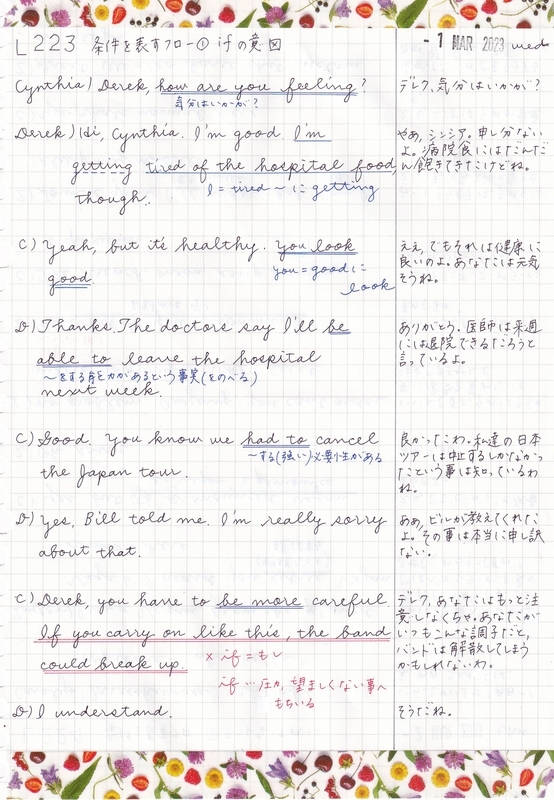 L223 条件を表すフロー① ifの意図
- 1 MAR 2023 wed
Cynthia) Derek, how are you feeling?
気分はいかが?
デレク、気分はいかが?
Derek) Hi, Cynthia. I'm good. I'm
getting tired of the hospital food,
I = tired ~ に getting
though.
やあ、シンシア。申し分ない
よ。病院食にはだんだ
ん飽きてきたけどね。
C) Yeah, but it's healthy. You look
good.
you = good に
look
ええ、でもそれは健康に
良いのよ。あなたは元気
そうね。
D) Thanks. The doctors say I'll be
able to leave the hospital
~をする能力があるという事実(をのべる)
next week.
ありがとう。医師は来週
には退院できるだろうと
言っているよ。
C) Good. You know we had to cancel
~する(強い)必要性がある
the Japan tour.
良かったわ。私達の日本
ツアーは中止するしかなかっ
たという事は知っているわ
ね。
D) Yes, Bill told me. I'm really sorry
about that.
ああ、ビルが教えてくれた
よ。その事は本当に申し訳
ない。
C) Derek, you have to be more careful.
If you carry on like this, the band
could break up.
× if = もし
if … 圧力、望ましくない事へ
もちいる
デレク、あなたはもっと注
意しなくちゃ。あなたが
いつもこんな調子だと、
バンドは解散してしまう
かもしれないわ。
D) I understand.
そうだね。